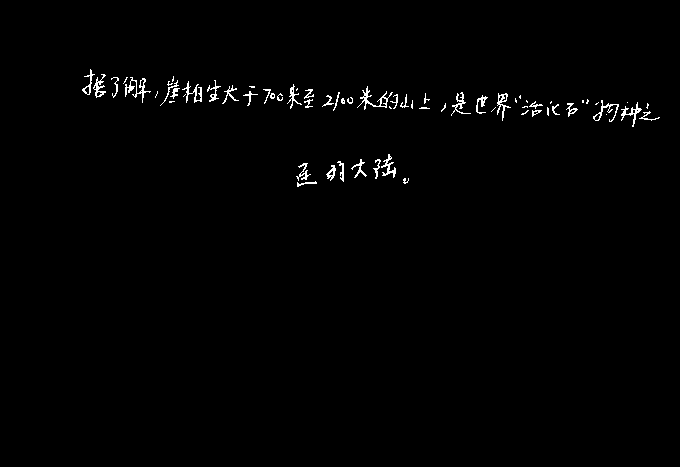 据了解,崖柏生长于700米至2100米的山上,是世界“活化石”物种之
的大陆。